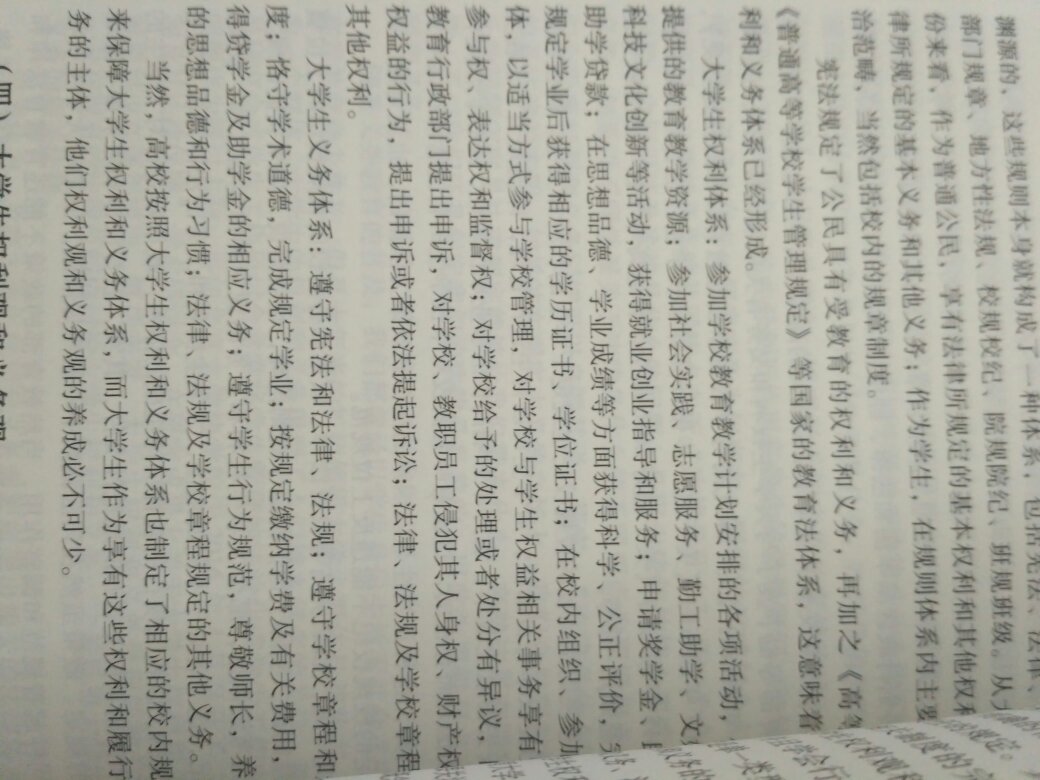 渊源的，这些规则本身就构成了一种体系，包括宪法、法律、
部门规章、地方性法规、校规校纪、院规院纪、班规班级。从
份来看，作为普通公民，享有法律所规定的基本权利和其他权利
律所规定的基本义务和其他义务；作为学生，在规则体系内主要
治范畴，当然包括校内的规章制度。
宪法规定了公民具有受教育的权利和义务，再加之《高等
《普通高等学校学生管理规定》等国家的教育法体系，这意味着
利和义务体系已经形成。
大学生权利体系：参加学校教育教学计划安排的各项活动，
提供的教育教学资源；参加社会实践、志愿服务、勤工助学、文
科技文化创新等活动，获得就业创业指导和服务；申请奖学金、
助学贷款；在思想品德、学业成绩等方面获得科学、公正评价，
规定学业后获得相应的学历证书、学位证书；在校内组织、参加
体，以适当方式参与学校管理，对学校与学生权益相关事务享有
参与权、表达权和监督权；对学校给予的处理或者处分有异议，
教育行政部门提出申诉，对学校、教职员工侵犯其人身权、财产权
权益的行为，提出申诉或者依法提起诉讼；法律、法规及学校章程
其他权利。
大学生义务体系：遵守宪法和法律、法规；遵守学校章程和
度；恪守学术道德，完成规定学业；按规定缴纳学费及有关费用，
得贷学金及助学金的相应义务；遵守学生行为规范，尊敬师长，养
的思想品德和行为习惯；法律、法规及学校章程规定的其他义务。
当然，高校按照大学生权利和义务体系也制定了相应的校内规
来保障大学生权利和义务体系，而大学生作为享有这些权利和履行
务的主体，他们权利观和义务观的养成必不可少。
（四）大学生权利观和义务观